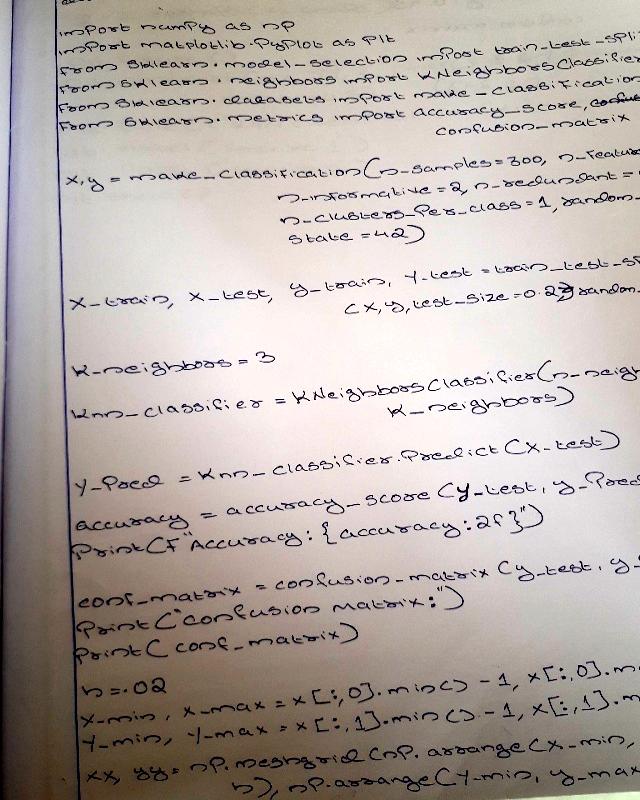 import numpy as np
import matplotlib.pyplot as plt
from sklearn.model_selection import train_test_spli
from sklearn.neighbors import KNeighborsClassifier
from sklearn.datasets import make_classification
from sklearn.metrics import accuracy_score,
confusion_matrix
x,y = make_classification(n_samples=300, n_featur
n_informative=2, n_redundant=
n_clusters_per_class=1, random_
state=42)
X_train, X_test, y_train, Y_test = train_test_s
(x,y,test_size=0.2, random
k_neighbors = 3
knn_classifier = KNeighborsClassifier(n_neigh
k_neighbors)
y_pred = knn_classifier.predict(X_test)
accuracy = accuracy_score(y_test, y_pred
print(f"Accuracy: {accuracy:2f}")
conf_matrix = confusion_matrix(y_test, y_
print("confusion matrix:")
print(conf_matrix)
h=.02
x-min, x-max = x[:,0].min() - 1, x[:,0].m
y-min, y-max = x[:,1].min() - 1, x[:,1].m
xx, yy = np.meshgrid(np.arrange(x-min,
h), np.arrange(y-min, y_max